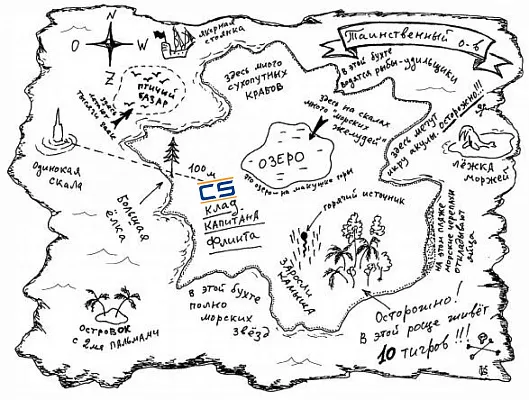 N
O
W
Z
Якорная
стоянка
Таинственный о-в
В этой бухте
водятся рыбы-удильщики
Здесь много
сухопутных
крабов
птичий
базар
Здесь
Одинокая
скала
100 м
Большая
ёлка
CS
Клад
капитана
Флинта
Здесь на скалах
много морских
желудей
Озеро
Это озеро на макушке горы
Здесь мечут
икру акулы
Осторожно!!!
Лёжка
моржей
На этом пляже
морские черепахи
откладывают
яйца
Горячий источник
Заросли
камыша
В этой бухте
полно
морских
звёзд
Островок
с 2мя пальмами
Осторожно!
В этой роще живёт
10 тигров!!!